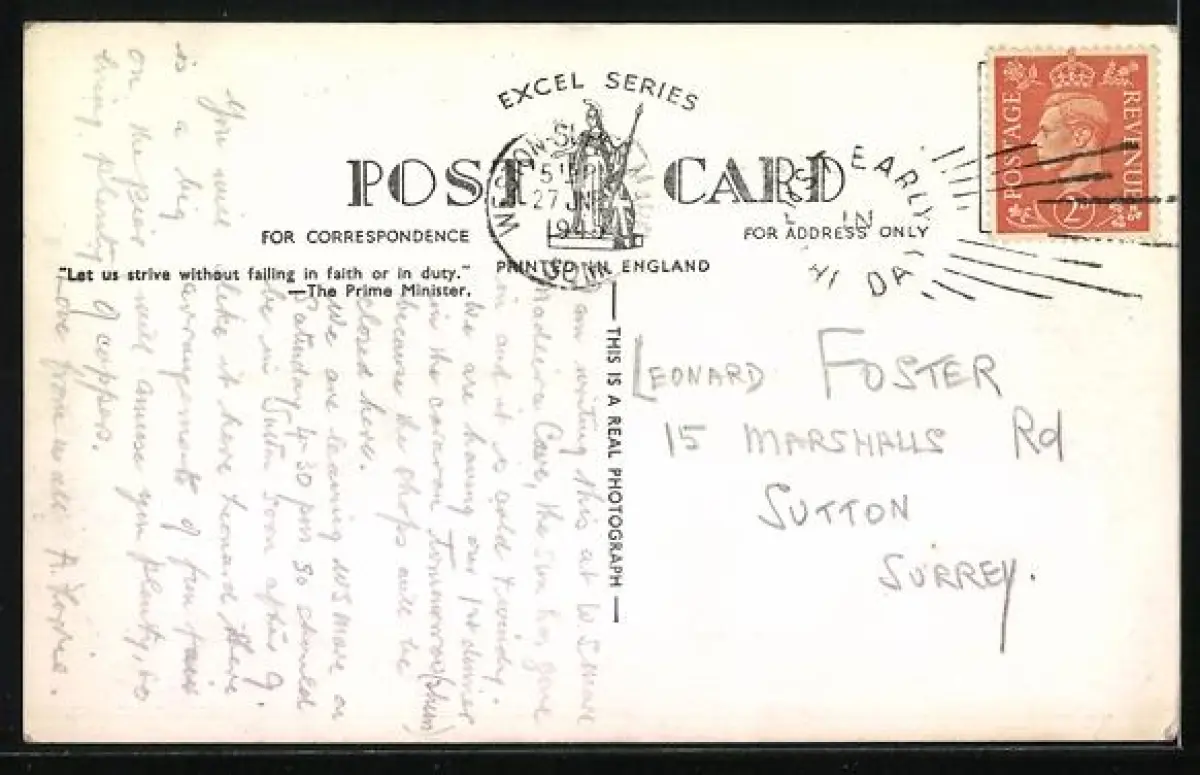 EXCEL SERIES
POST CARD
FOR CORRESPONDENCE
FOR ADDRESS ONLY
"Let us strive without failing in faith or in duty."
—The Prime Minister.
PRINTED IN ENGLAND
THIS IS A REAL PHOTOGRAPH
27 JNE
POSTAGE REVENUE
2
EARLY
IN
DAY
LEONARD FOSTER
15 MARSHALLS Rd
SUTTON
SURREY.
am writing this at W S Mare
Madeira Cove, the sun has gone
in and it is cold & windy.
We are having our 1st dinner
in the caravan tomorrow
because the shops will be
closed here.
We are leaving WS Mare on
Saturday 4-30 pm so should
be in Sutton soon after 9.
You will like it here Leonard there
is a big arrangements of fun fair
on the Pier will amuse you plenty, so
bring plenty of coppers.
Love from us all A.